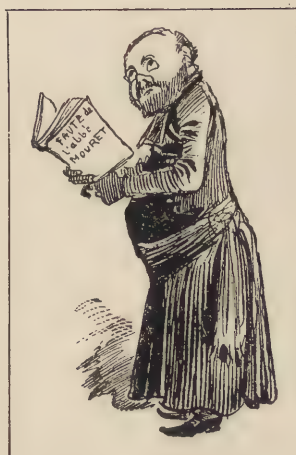 FAUTE de
l'abbé
MOURET